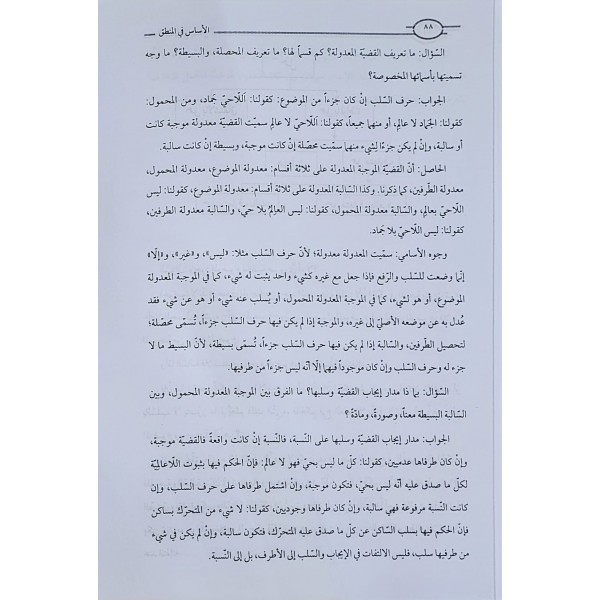 ٨٨
الأساس في المنطق
السّؤال: ما تعريف القضيّة المعدولة؟ كم قسماً لها؟ ما تعريف المحصلة، والبسيطة؟ ما وجه
تسميتها بأسمائها المخصوصة؟
الجواب: حرف السّلب إنْ كان جزءاً من الموضوع: كقولنا: اَللّاحيّ جَماد، ومن المحمول:
كقولنا: الجَماد لا عالِم، أو منهما جميعاً، كقولنا: اَللّاحيّ لا عالِم سميّت القضيّة معدولة موجبة كانت
أو سالبة، وإنْ لم يكن جزءًا لشيء منهما سمّيت محصّلة إنْ كانت موجبة، وبسيطة إنْ كانت سالبة.
الحاصل: أنّ القضيّة الموجبة المعدولة على ثلاثة أقسام: معدولة الموضوع، معدولة المحمول،
معدولة الطّرفين، كما ذكرنا. وكذا السّالبة المعدولة على ثلاثة أقسام: معدولة الموضوع، كقولنا: ليس
اللّاحيّ بعالِم، والسّالبة معدولة المحمول، كقولنا: ليس العالِمُ بلا حيّ، والسّالبة معدولة الطرفين،
كقولنا: ليس اللّاحيّ بلا جَماد.
وجوه الأسامي: سمّيت المعدولة معدولة؛ لأنّ حرف السّلب مثلا: «ليس»، و«غير»، و«إلّا»
إنّما وضعت للسّلب والرّفع فإذا جعل مع غيره كشيء واحد يثبت له شيء، كما في الموجبة المعدولة
الموضوع، أو هو لشيء، كما في الموجبة المعدولة المحمول، أو يُسلب عنه شيء أو هو عن شيء فقد
عُدل به عن موضعه الأصليّ إلى غيره، والموجبة إذا لم يكن فيها حرف السّلب جزءاً، تُسمّى محصّلة؛
لتحصيل الطّرفين، والسّالبة إذا لم يكن فيها حرف السّلب جزءاً، تُسمّى بسيطة، لأنّ البسيط ما لا
جزء له وحرف السّلب وإنْ كان موجوداً فيهما إلّا أنّه ليس جزءاً من طرفيها.
السّؤال: بما ذا مدار إيجاب القضيّة وسلبها؟ ما الفرق بين الموجبة المعدولة المحمول، وبين
السّالبة البسيطة معناً، وصورةً، ومادّةً؟
الجواب: مدار إيجاب القضيّة وسلبها على النّسبة، فالنّسبة إنْ كانت واقعةً فالقضيّة موجبة،
وإنْ كان طرفاها عدميين، كقولنا: كلّ ما ليس بحيّ فهو لا عالم: فإنّ الحكم فيها بثبوت اللّاعالِميّة
لكلّ ما صدق عليه أنّه ليس بحيّ، فتكون موجبة، وإنْ اشتمل طرفاها على حرف السّلب، وإنْ
كانت النّسبة مرفوعة فهي سالبة، وإنْ كان طرفاها وجوديين، كقولنا: لا شيء من المتحرّك بساكن
فإنّ الحكم فيها بسلب السّاكن عن كلّ ما صدق عليه المتحرّك، فتكون سالبة، وإنْ لم يكن في شيء
من طرفيها سلب، فليس الالتفات في الإيجاب والسّلب إلى الأطرف، بل إلى النّسبة.